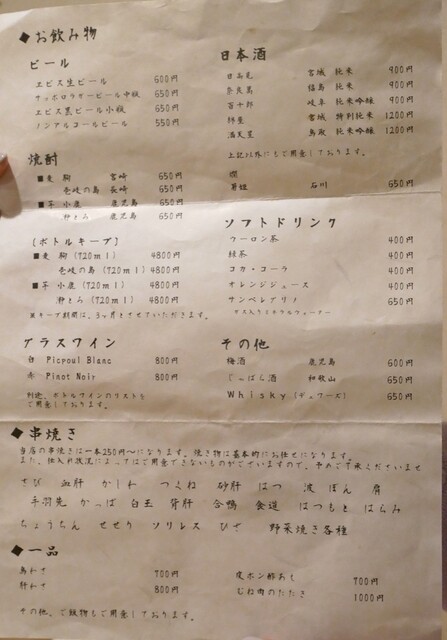 ◆お飲み物
ビール
ヱビス生ビール 600円
サッポロラガービール中瓶 650円
ヱビス黒ビール小瓶 650円
ノンアルコールビール 550円
焼酎
■麦 駒 宮崎 650円
壱岐の島 長崎 650円
■芋 小鹿 鹿児島 650円
鹿児島 650円
[ボトルキープ]
■麦 駒 (720ml) 4800円
壱岐の島 (720ml) 4800円
■芋 小鹿 (720ml) 4800円
(720ml) 4800円
※キープ期間は、3ヶ月とさせていただきます。
グラスワイン
白 Picpoul Blanc 800円
赤 Pinot Noir 800円
別途、ボトルワインのリストも
ご用意しております。
日本酒
日高見 宮城 純米 900円
奈良萬 福島 純米 900円
百十郎 岐阜 純米吟醸 900円
宮城 特別純米 1200円
満天星 鳥取 純米吟醸 1200円
上記以外にもご用意しております。
燗
石川 650円
ソフトドリンク
ウーロン茶 400円
緑茶 400円
コカ・コーラ 400円
オレンジジュース 400円
サンペレグリノ 650円
ガス入りミネラルウォーター
その他
梅酒 鹿児島 600円
じゃばら酒 和歌山 650円
Whisky(デュワーズ) 650円
◆串焼き
当店の串焼きは一本250円〜になります。焼き物は基本的にお任せになります。
また、仕入れ状況によってはご用意できないものがございますので、予めご了承くださいませ
さび 血肝 かしわ つくね 砂肝 はつ 波 ぼん 肩
手羽先 かっぱ 白玉 背肝 合鴨 食道 はつもと はらみ
ちょうちん せせり ソリレス ひざ 野菜焼き各種
◆一品
鳥わさ 700円
肝わさ 800円
皮ポン酢あし 700円
むね肉のたたき 1000円
その他、ご飯物もご用意しております。